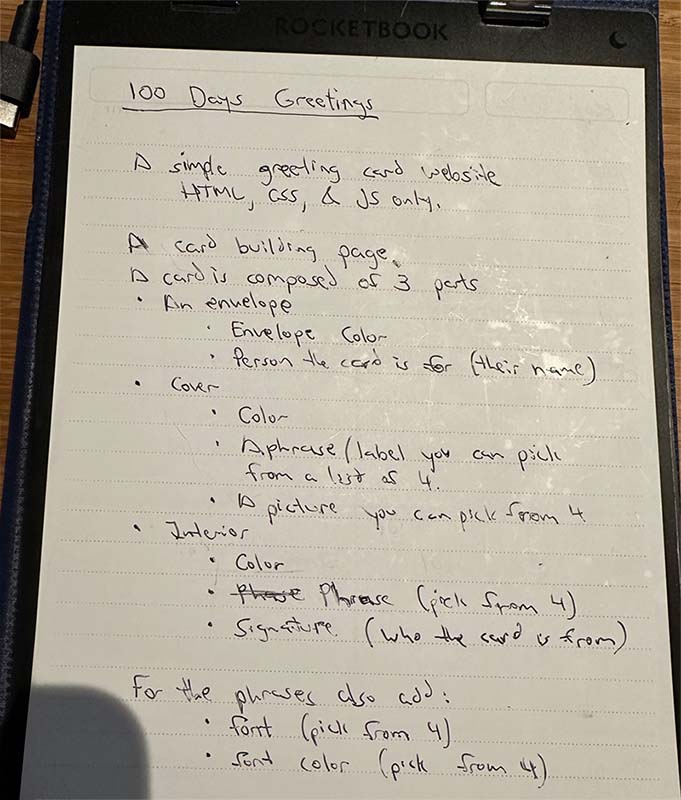 ROCKETBOOK
100 Days Greetings
A simple greeting card website
HTML, CSS, & JS only.
A card building page.
A card is composed of 3 parts
• An envelope
• Envelope Color
• Person the card is for (their name)
• Cover
• Color
• A phrase/label you can pick
from a list of 4.
• A picture you can pick from 4
• Interior
• Color
• Phrase Phrase (pick from 4)
• Signature (who the card is from)
For the phrases also add:
• font (pick from 4)
• font color (pick from 4)